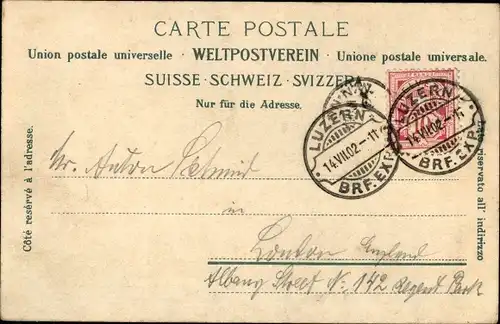 CARTE POSTALE
Union postale universelle · WELTPOSTVEREIN · Unione postale universale.
SUISSE · SCHWEIZ · SVIZZERA
Nur für die Adresse.
Côté réservé à l'adresse.
Lato riservato all' indirizzo
LUZERN
14.VII.02-11
BRF.EXP.
LUZERN
14.VII.02-11
BRF.EXP.
Mr. Anton Schmid
in
London England
Albany Street No. 142 Regent Park